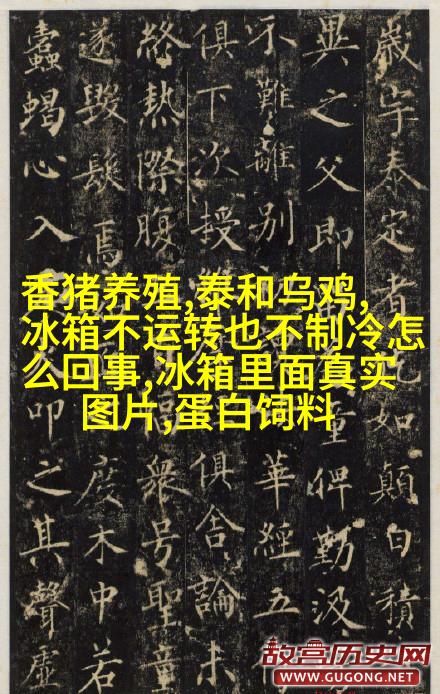 歲宇泰定者如顛自積
異之父即重俾勤汲
不難離別華經五
俱下次授俱舍論未
終熱際腹眾号聖童
遂毀焉度木中若
蠹蝎心入叩之其聲虛
香猪养殖,泰和乌鸡,
冰箱不运转也不制冷怎
么回事,冰箱里面真实
图片,蛋白饲料
故宫历史网
WWW.GUGONG.NET